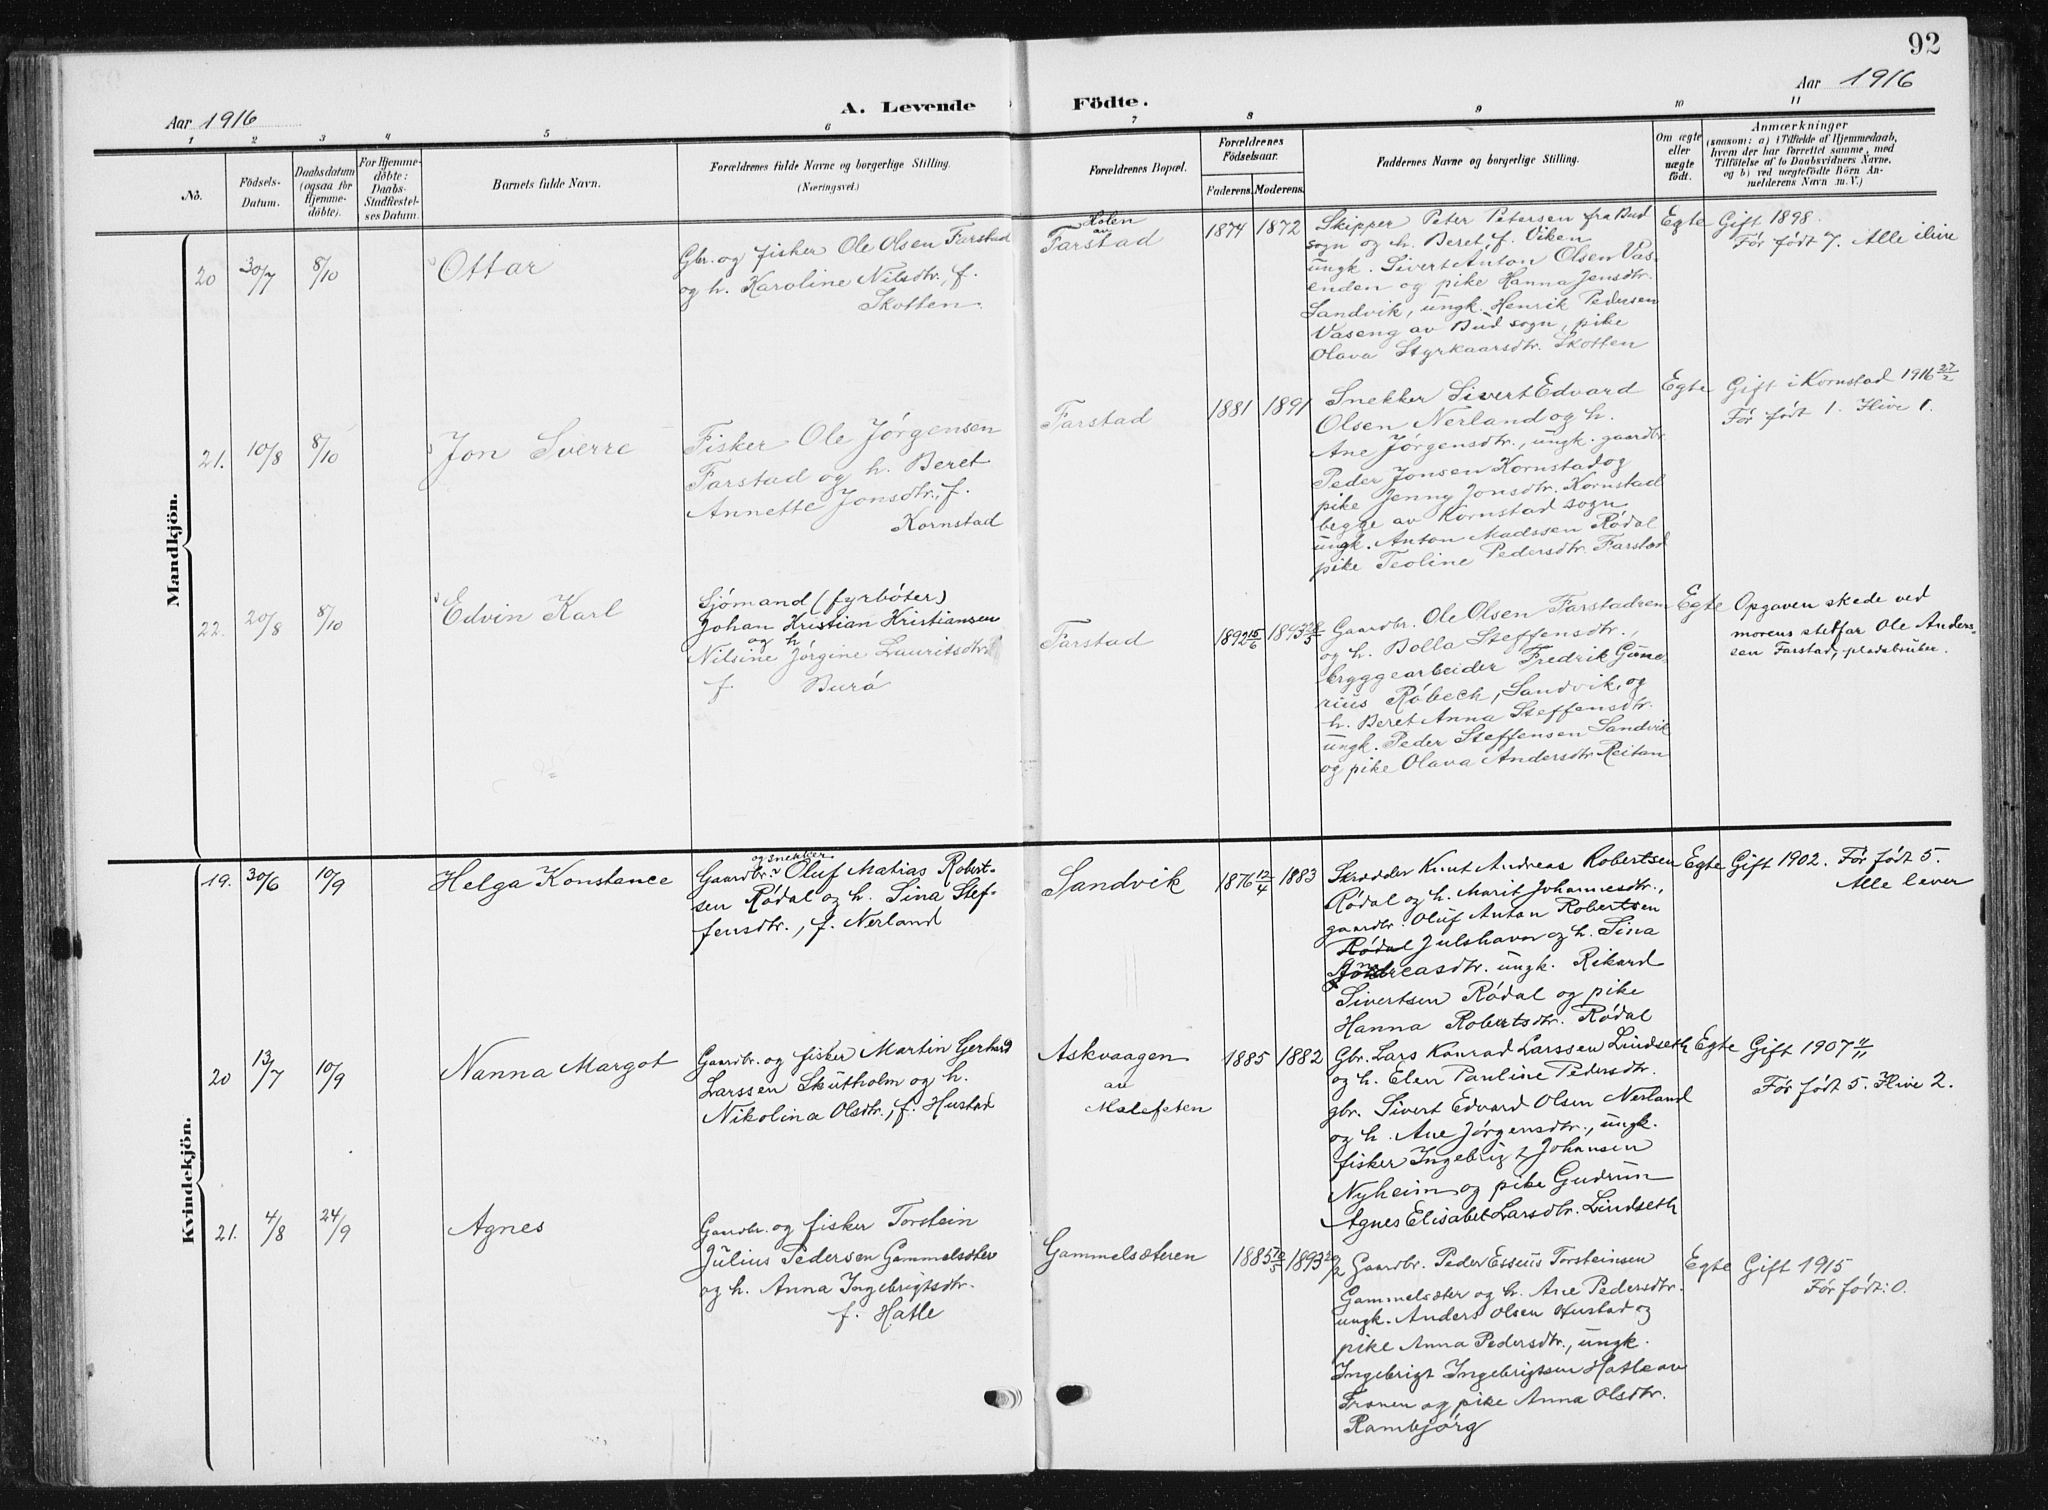 92
Aar 1916
A. Levende Födte.
Aar 1916
1 2 3 4 5 6 7 8 9 10 11
No.
Födsels-
Datum.
Daabsdatum
(ogsaa for
Hjemme-
döbte).
For Hjemme-
döbte:
Daabs-
Stadfæstel-
ses Datum.
Barnets fulde Navn.
Forældrenes fulde Navne og borgerlige Stilling.
(Næringsvei.)
Forældrenes Bopæl.
Forældrenes
Födselsaar.
Faderens. Moderens.
Faddernes Navne og borgerlige Stilling.
Om ægte
eller
uægte
födt.
Anmærkninger
(saasom: a) i Tilfælde af Hjemmedaab,
hvem der har forrettet samme, med
Tilföielse af to Daabsvidners Navne,
og b) ved uægtefödte Börn An-
melderens Navn m. V.)
Mandkjön.
20 30/7 8/10
Ottar
Gbr. og fisker Ole Olsen Farstad
og h. Karoline Nilsdtr., f.
Skotten.
Holen
av
Farstad
1874 1872
Skipper Peter Petersen fra Bud
sogn og h. Beret f. Viken
ungk. Sivert Anton Olsen Vas-
enden og pike Hanna Jensdtr.
Sandvik, ungk. Henrik Pedersen
Vaseng av Bud sogn, pike
Olava Styrkaarsdtr. Skotten
Egte
Gift 1898.
Før født 7. Alle ilive
21. 10/8 8/10
Jon Sverre
Fisker Ole Jørgensen
Farstad og h. Beret
Annette Jonsdtr., f.
Kornstad
Farstad
1881 1891
Snekker Sivert Edvard
Olsen Nerland og h.
Ane Jørgensdtr., ungk. gaardbr.
Peder Jonsen Kornstad og
pike Jenny Jonsdtr. Kornstad
begge av Kornstad sogn
ungk. Anton Madssen Rødal
pike Teoline Pedersdtr. Farstad
Egte
Gift i Kornstad 1916 27/2
Før født 1. Ilive 1.
22. 20/8 8/10
Edvin Karl
Sjømand (fyrbøter)
Johan Kristian Kristiansen
og h.
Nilsine Jørgine Lauritsdtr.
f. Burø
Farstad
1892 15/6 1893 28/5
Gaardbr. Ole Olsen Farstadrem
og h. Bolla Steffensdtr.,
bryggearbeider Fredrik Gune-
rius Røbech, Sandvik, og
h. Beret Anna Steffensdtr.
ungk. Peder Steffensen Sandvik
og pike Olava Andersdtr. Reitan
Egte
Opgaven skede ved
morens stedfar Ole Anders-
sen Farstad, pladsbruker.
Kvindekjön.
19. 30/6 10/9
Helga Konstance
og snekker
Gaardbr. Oluf Matias Robert-
sen Rødal og h. Sina Stef-
fensdtr., f. Nerland
Sandvik
1876 12/4 1883
Skrædder Knut Andreas Robertsen
Rødal og h. Marit Johannesdtr.,
gaardbr. Oluf Anton Robertsen
Rødal Julshavn og h. Sina
Andreasdtr. ungk. Rikard
Sivertsen Rødal og pike
Hanna Robertsdtr. Rødal
Egte
Gift 1902. Før født 5.
Alle lever
20 13/7 10/9
Nanna Margot
Gaardbr. og fisker Martin Gerhard
Larssen Skutholm og h.
Nikolina Olsdtr., f. Hustad
Askvaagen
av
Malefeten
1885 1882
Gbr. Lars Konrad Larssen Lindseth
og h. Elen Pauline Pedersdtr.
gbr. Sivert Edvard Olsen Nerland
og h. Ane Jørgensdtr., ungk.
fisker Ingebrigt Johansen
Nyheim og pike Gudrun
Agnes Elisabet Larsdtr. Lindseth
Egte
Gift 1907 4/11
Før født 5. Ilive 2.
21. 4/8 24/9
Agnes
Gaardbr. og fisker Torstein
Julius Pedersen Gammelsæter
og h. Anna Ingebrigtsdtr.
f. Hatle
Gammelsæteren
1885 10/5 1893 22/2
Gaardbr. Peder Essius Torsteinsen
Gammelsæter og h. Ane Pedersdtr.
ungk. Anders Olsen Hustad og
pike Anna Pedersdtr., ungk.
Ingebrigt Ingebrigtsen Hatle av
Frænen og pike Anna Olsdtr.
Rambjørg
Egte
Gift 1915
Før født: 0.